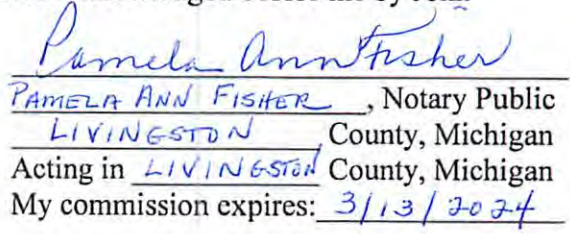 Pamela Ann Fisher
PAMELA ANN FISHER, Notary Public
LIVINGSTON County, Michigan
Acting in LIVINGSTON County, Michigan
My commission expires: 3/13/2024